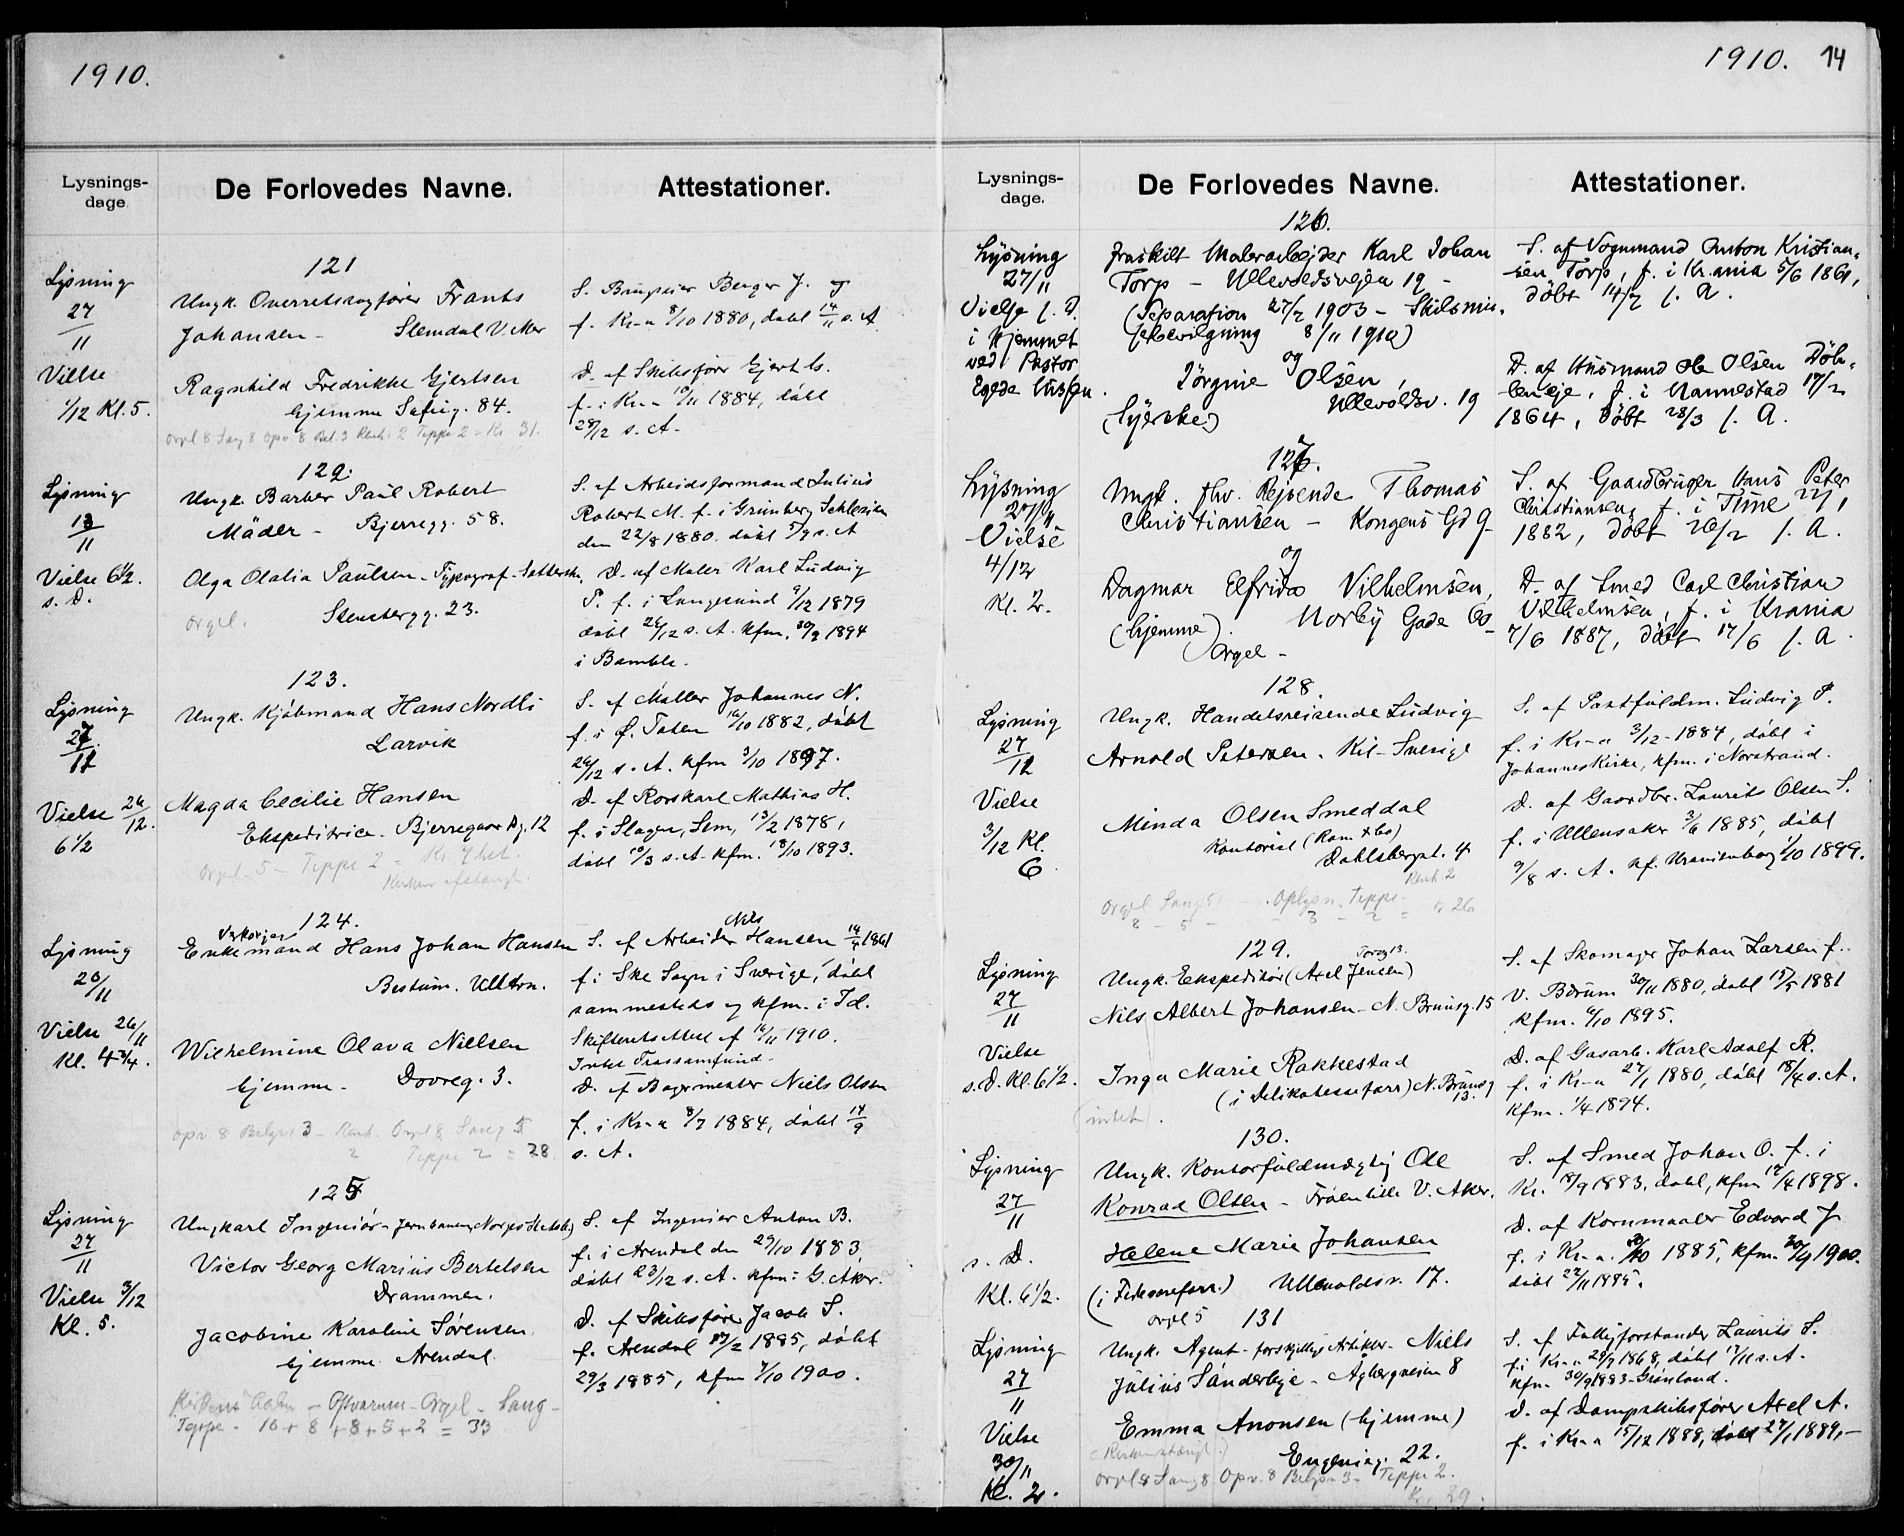 1910.
Lysnings-
dage.
De Forlovedes Navne.
Attestationer.
121
Lysning
27
11
Vielse
1/12 Kl. 5.
Ungk. Overretssagfører Frants
Johansen - Slemdal V. Aker
Ragnhild Fredrikke Gjertsen
hjemme 84.
S. Berger J. og
f. Kr-a 8/10 1880, døbt 14/11 s. A.
D. af Skibsfører Gjert G.
f. i Kr-a 10/11 1884, døbt
28/12 s. A.
122.
Lysning
13
11
Vielse 6 1/2.
s. D.
Ungk. Barber Paul Robert
Mäder - Bjerregg. 58.
Olga Olalia Paulsen - Typograf-
Stensbergg. 23.
orgel.
S. af Arbeidsformand Julius
Robert M. f. i Grünberg Schlesien
den 22/8 1880. døbt 5/9 s. A
D. af Maler Karl Ludvig
P. f. i Langesund 9/12 1879
døbt 26/12 s. A. kfm. 30/9 1894
i Bamble.
123.
Lysning
27
11
Vielse 26/12.
6 1/2
Ungk. Kjøbmand Hans Nordli
Larvik
Magda Cecilie Hansen
Ekspeditrice - Bjerregaardsg. 12
Orgel - 5 - Teppe 2 = Kr. 7
S. af Møller Johannes N.
f. i Ø. Toten 16/10 1882, døbt
26/12 s. A. kfm 3/10 1897.
D. af Mathias H.
f. i Slagen, Sem, 13/2 1878,
døbt 10/3 s. A. kfm. 18/10 1893.
124.
Lysning
20/11
Vielse 26/11
Kl. 4 3/4.
Enkemand Hans Johan Hansen
Bestum. Ullern.
Wilhelmine Olava Nielsen
hjemme - Dovreg. 3.
Nils
S. af Arbeider Hansen 14/4 1861
f. i Ske Sogn i Sverige, døbt
sammesteds og kfm. i Id.
Skifteretsattest af 16/11 1910.
Intet Trossamfund.
D. af Bagermester Niels Olsen
f. i Kr-a 8/7 1884, døbt 14/9
s. A.
125
Lysning
27
11
Vielse 3/12
Kl. 5.
Ungkarl Ingeniør -
Victor Georg Marius Bertelsen
Drammen.
Jacobine Karoline Sørensen
hjemme Arendal.
Teppe - 10 + 8 + 8 + 5 + 2 = 33
S. af Ingeniør Anton B.
f. i Arendal den 29/10 1883,
døbt 23/12 s. A. kfm: G. Aker.
D. af Skibsfører Jacob S.
f. Arendal 17/2 1885, døbt
29/3 1885, kfm 7/10 1900.
1910. 14
Lysnings-
dage.
De Forlovedes Navne.
Attestationer.
126.
Lysning
27/11
Vielse s. D.
i Hjemmet
ved Pastor
Egede Nissen.
fraskilt Malerarbejder Karl Johan
Torp - Ullevoldsvejen 19 -
(Separation 27/2 1903 - Skilsmis-
sebevilgning 8/11 1910)
og
Jørgine Olsen,
(Syerske) Ullevoldsv. 19
S. af Vognmand Anton Kristian-
sen Torp, f. i Kr.ania 5/6 1861,
døbt 14/7 s. A.
D. af Husmand Ole Olsen Døh-
leneje, f. i Nannestad 17/2
1864, døbt 28/3 s. A.
127.
Lysning
27/11
Vielse
4/12
Kl. 2.
Ungk. fhv. Rejsende Thomas
Christiansen - Kongens Gd 9
og
Dagmar Elfrida Vilhelmsen,
(hjemme). Norby Gade 60
Orgel -
S. af Gaardbruger Hans Peter
Christiansen, f. i Time 22/1
1882, døbt 26/2 s. A.
D. af Smed Carl Christian
Vilhelmsen, f. i Krania
7/6 1887, døbt 17/6 s. A.
128.
Lysning
27
11
Vielse
3/12 Kl.
6
Ungk. Handelsreisende Ludvig
Arnold Petersen. Kil - Sverige
Minda Olsen Smeddal
Kontorist
Dahlsbergst. 4
S. af Postfuldm. Ludvig P.
f. i Kr-a 3/12 - 1884, døbt i
Johanneskirke, kfm. i Nordstrand.
D. af Gaardbr. Laurits Olsen S.
f. i Ullensaker 3/6 1885, døbt
9/8 s. A. kf. Uranienborg 1/10 1899.
129.
Lysning
27
11
Vielse
s. D. Kl. 6 1/2.
Ungk. Ekspeditør (Axel Jensen) Torvg 13.
Nils Albert Johansen - N. Brunsg. 15
Inga Marie Rakkestad
(i Delikatesseforr) N. Brunsg
13.
(intet).
S. af Skomager Johan Larsen f.
V. Bærum 30/11 1880, døbt 15/5 1881
kfm. 6/10 1895.
D. af Gasarb. Karl Adolf R.
f. i Kr-a 27/1 1880, døbt 18/4 s. A.
kfm. 1/4 1894.
130.
Lysning
27
11
s. D.
Kl. 6 1/2.
Ungk. Kontorfuldmægtig Ole
Konrad Olsen - V. Aker.
Helene Marie Johansen
Ullevoldsv. 17.
orgel 5
S. af Smed Johan O. f. i
Kr. 18/9 1883, døbt, kfm 17/4 1898.
D. af Kornmaaler Edvard J
f. i Kr-a 1885, kfm. 30/9 1900.
døbt 22/11 1885.
131
Lysning
27
11
Vielse
30/11
Kl. 2.
Ungk. Agent - forskjellige Artikler - Niels
Julius Sønderbye - 8
Emma Anonsen (hjemme)
Eugeniag. 22.
orgel 8 Sang 8 Opv. 8 Belysn 3 - Teppe 2.
Kr. 29.
S. af Laurits S.
f. i Kr-a 29/7 1868, døbt s. A.
kfm. 30/9 1883 - Grønland.
D. af Dampskibsfører Axel A.
f. i Kr-a 15/12 1888, døbt 27/1 1889.